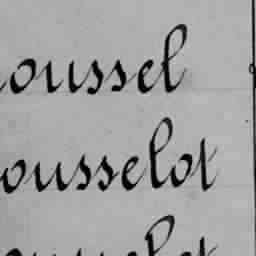 oussel
ousselot